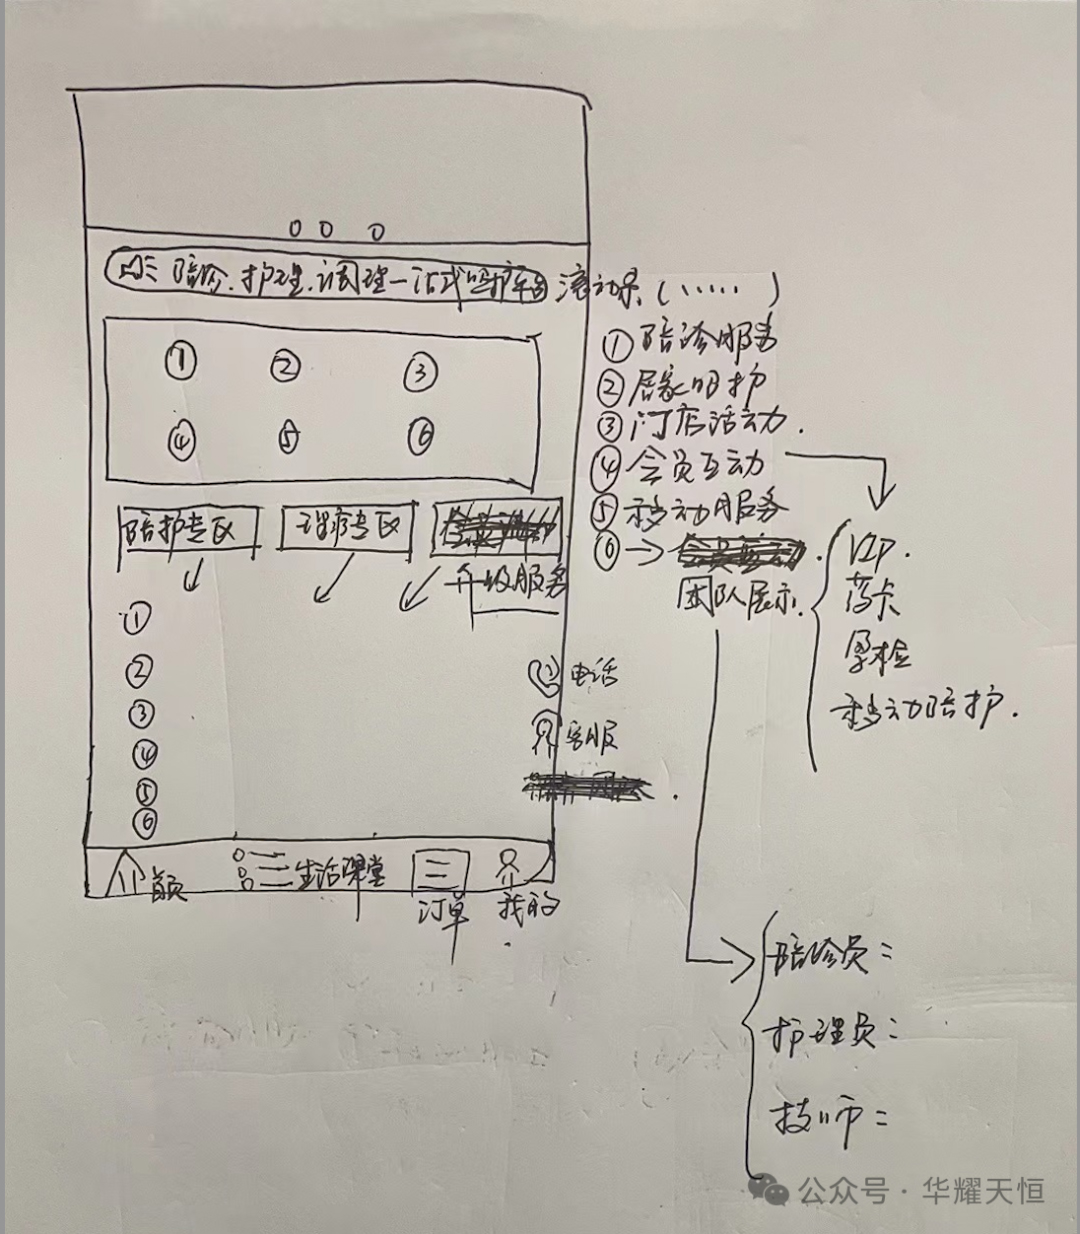 陪诊.护理.调理一站式呵护平台 滚动条(......)
① ② ③
④ ⑤ ⑥
①陪诊服务
②居家呵护
③门店活动.
④会员互动
⑤移动服务
⑥→
团队展示.
VIP.
药卡
孕检
移动陪护.
陪护专区 理疗专区
升级服务
①
②
③
④
⑤
⑥
电话
客服
首页 生活课堂 订单 我的
陪诊员:
护理员:
技师:
公众号·华耀天恒